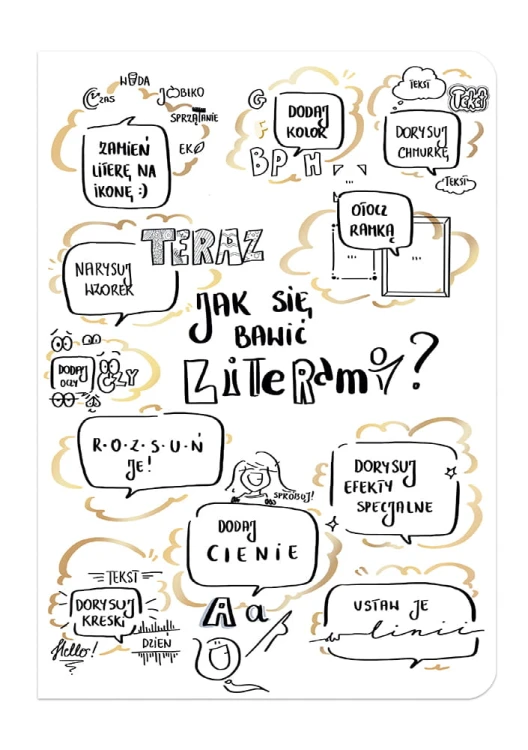 WODA
CZAS
JABŁKO
SPRZĄTANIE
EKO
ZAMIEŃ
LITERĘ NA
IKONĘ :)
G
F
DODAJ
KOLOR
B P H
TEKST
TEKST
DORYSUJ
CHMURKĘ
TEKST
OTOCZ
RAMKĄ
...
...
...
TERAZ
NARYSUJ
WZOREK
JAK SIĘ
BAWIĆ
LITERAMI?
DODAJ
OCZY
OCZY
R·O·Z·S·U·Ń
JE!
SPRÓBUJ!
DODAJ
CIENIE
A a
DORYSUJ
EFEKTY
SPECJALNE
TEKST
DORYSUJ
KRESKI
Hello!
DZIEŃ
USTAW JE
w linii